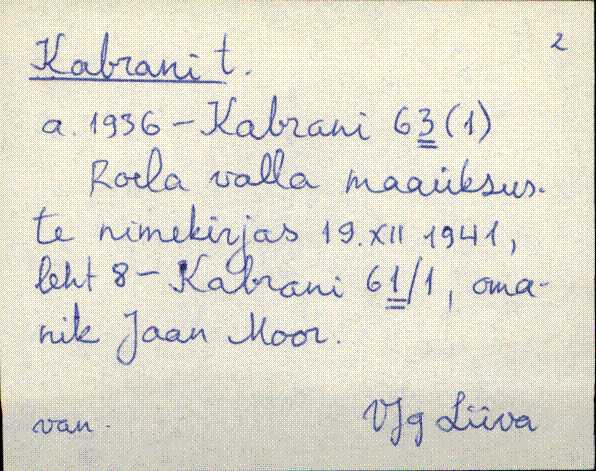 2
Kabrani t.
a. 1936 – Kabrani 63 (1)
Roela valla maaüksus-
te nimekirjas 19. XII 1941,
leht 8 – Kabrani 61/1, oma-
nik Jaan Moor.
van. VJg Liiva